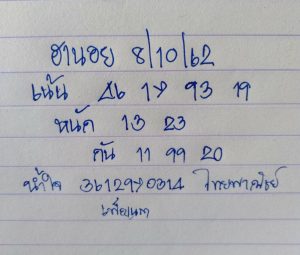 ฮานอย 8/10/62
เน้น 26 17 93 19
หนัก 13 23
กัน 11 99 20
น้ำใจ 3612970314 ไทยพาณิชย์